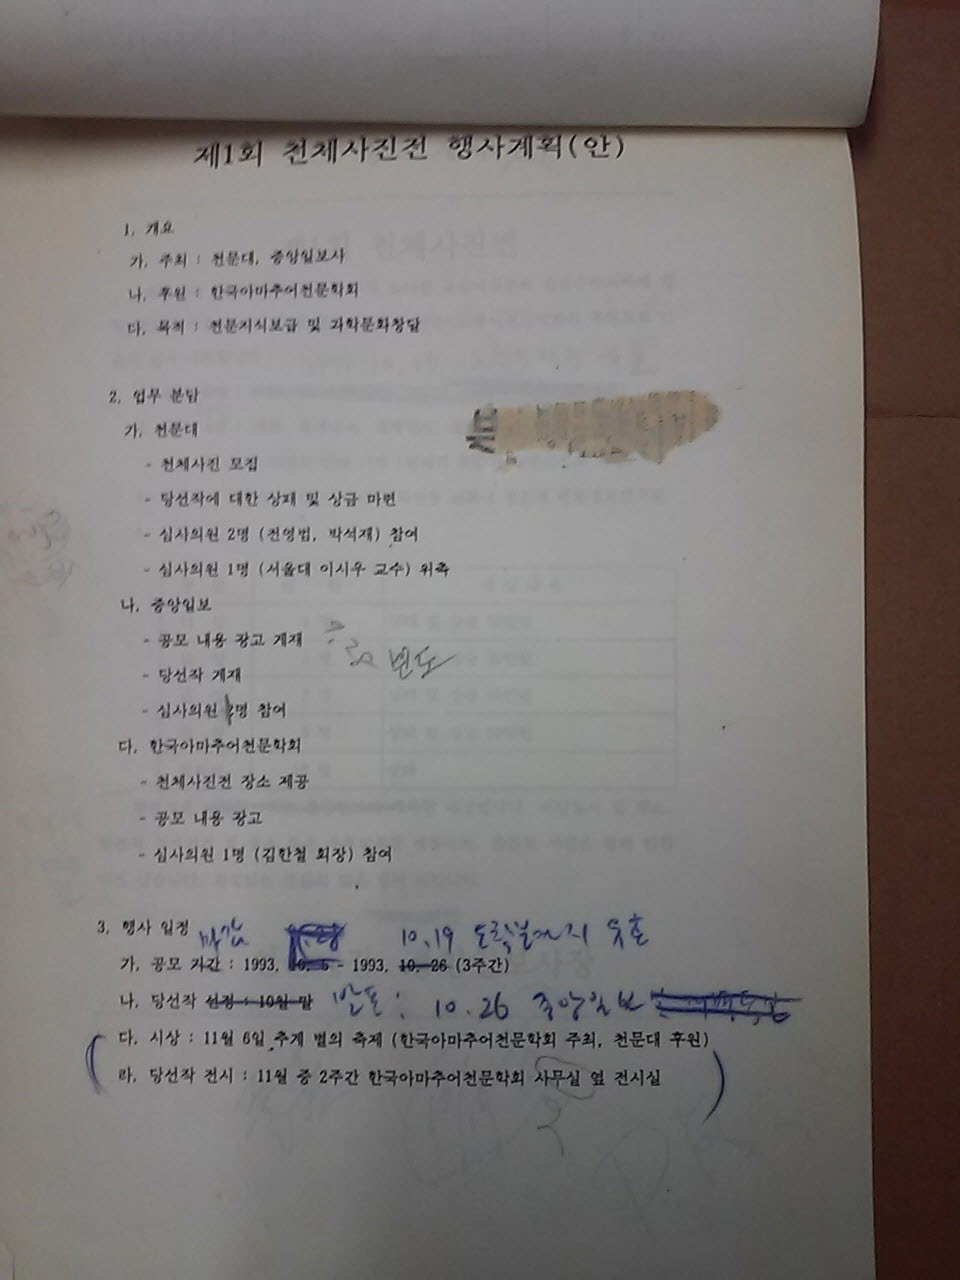 제1회 천체사진전 행사계획(안)
1. 개요
가. 주최 : 천문대, 중앙일보사
나. 후원 : 한국아마추어천문학회
다. 목적 : 천문지식보급 및 과학문화창달
2. 업무 분담
가. 천문대
- 천체사진 모집
- 당선작에 대한 상패 및 상금 마련
- 심사의원 2명 (전영범, 박석재) 참여
- 심사의원 1명 (서울대 이시우 교수) 위촉
나. 중앙일보
- 공모 내용 광고 게재
- 당선작 게재
- 심사의원 명 참여
다. 한국아마추어천문학회
- 천체사진전 장소 제공
- 공모 내용 광고
- 심사의원 1명 (김한철 회장) 참여
3. 행사 일정 마감 10.19 도착분까지 유효
가. 공모 기간 : 1993. 10. 5 - 1993. 10. 26 (3주간)
나. 당선작 선정 : 10월 말 발표 : 10.26 중앙일보
다. 시상 : 11월 6일 추계 별의 축제 (한국아마추어천문학회 주최, 천문대 후원)
라. 당선작 전시 : 11월 중 2주간 한국아마추어천문학회 사무실 옆 전시실